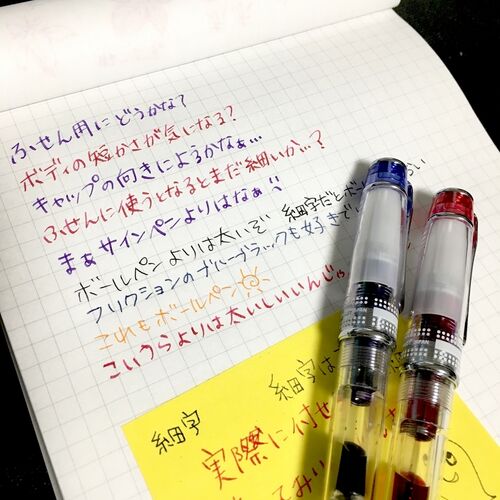 ふせん用にどうかな?
ボディの短かさが気になる?
キャップの向きによるかなぁ…
ふせんに使うとなるとまだ細いか…?
まぁサインペンよりはなぁ
ボールペンよりは太いぞ 細字だとボ
フリクションのブルーブラックも好きで
これもボールペン
こいつらよりは太いしいいんじゃ
細字 細字は
実際に付せ
てみ